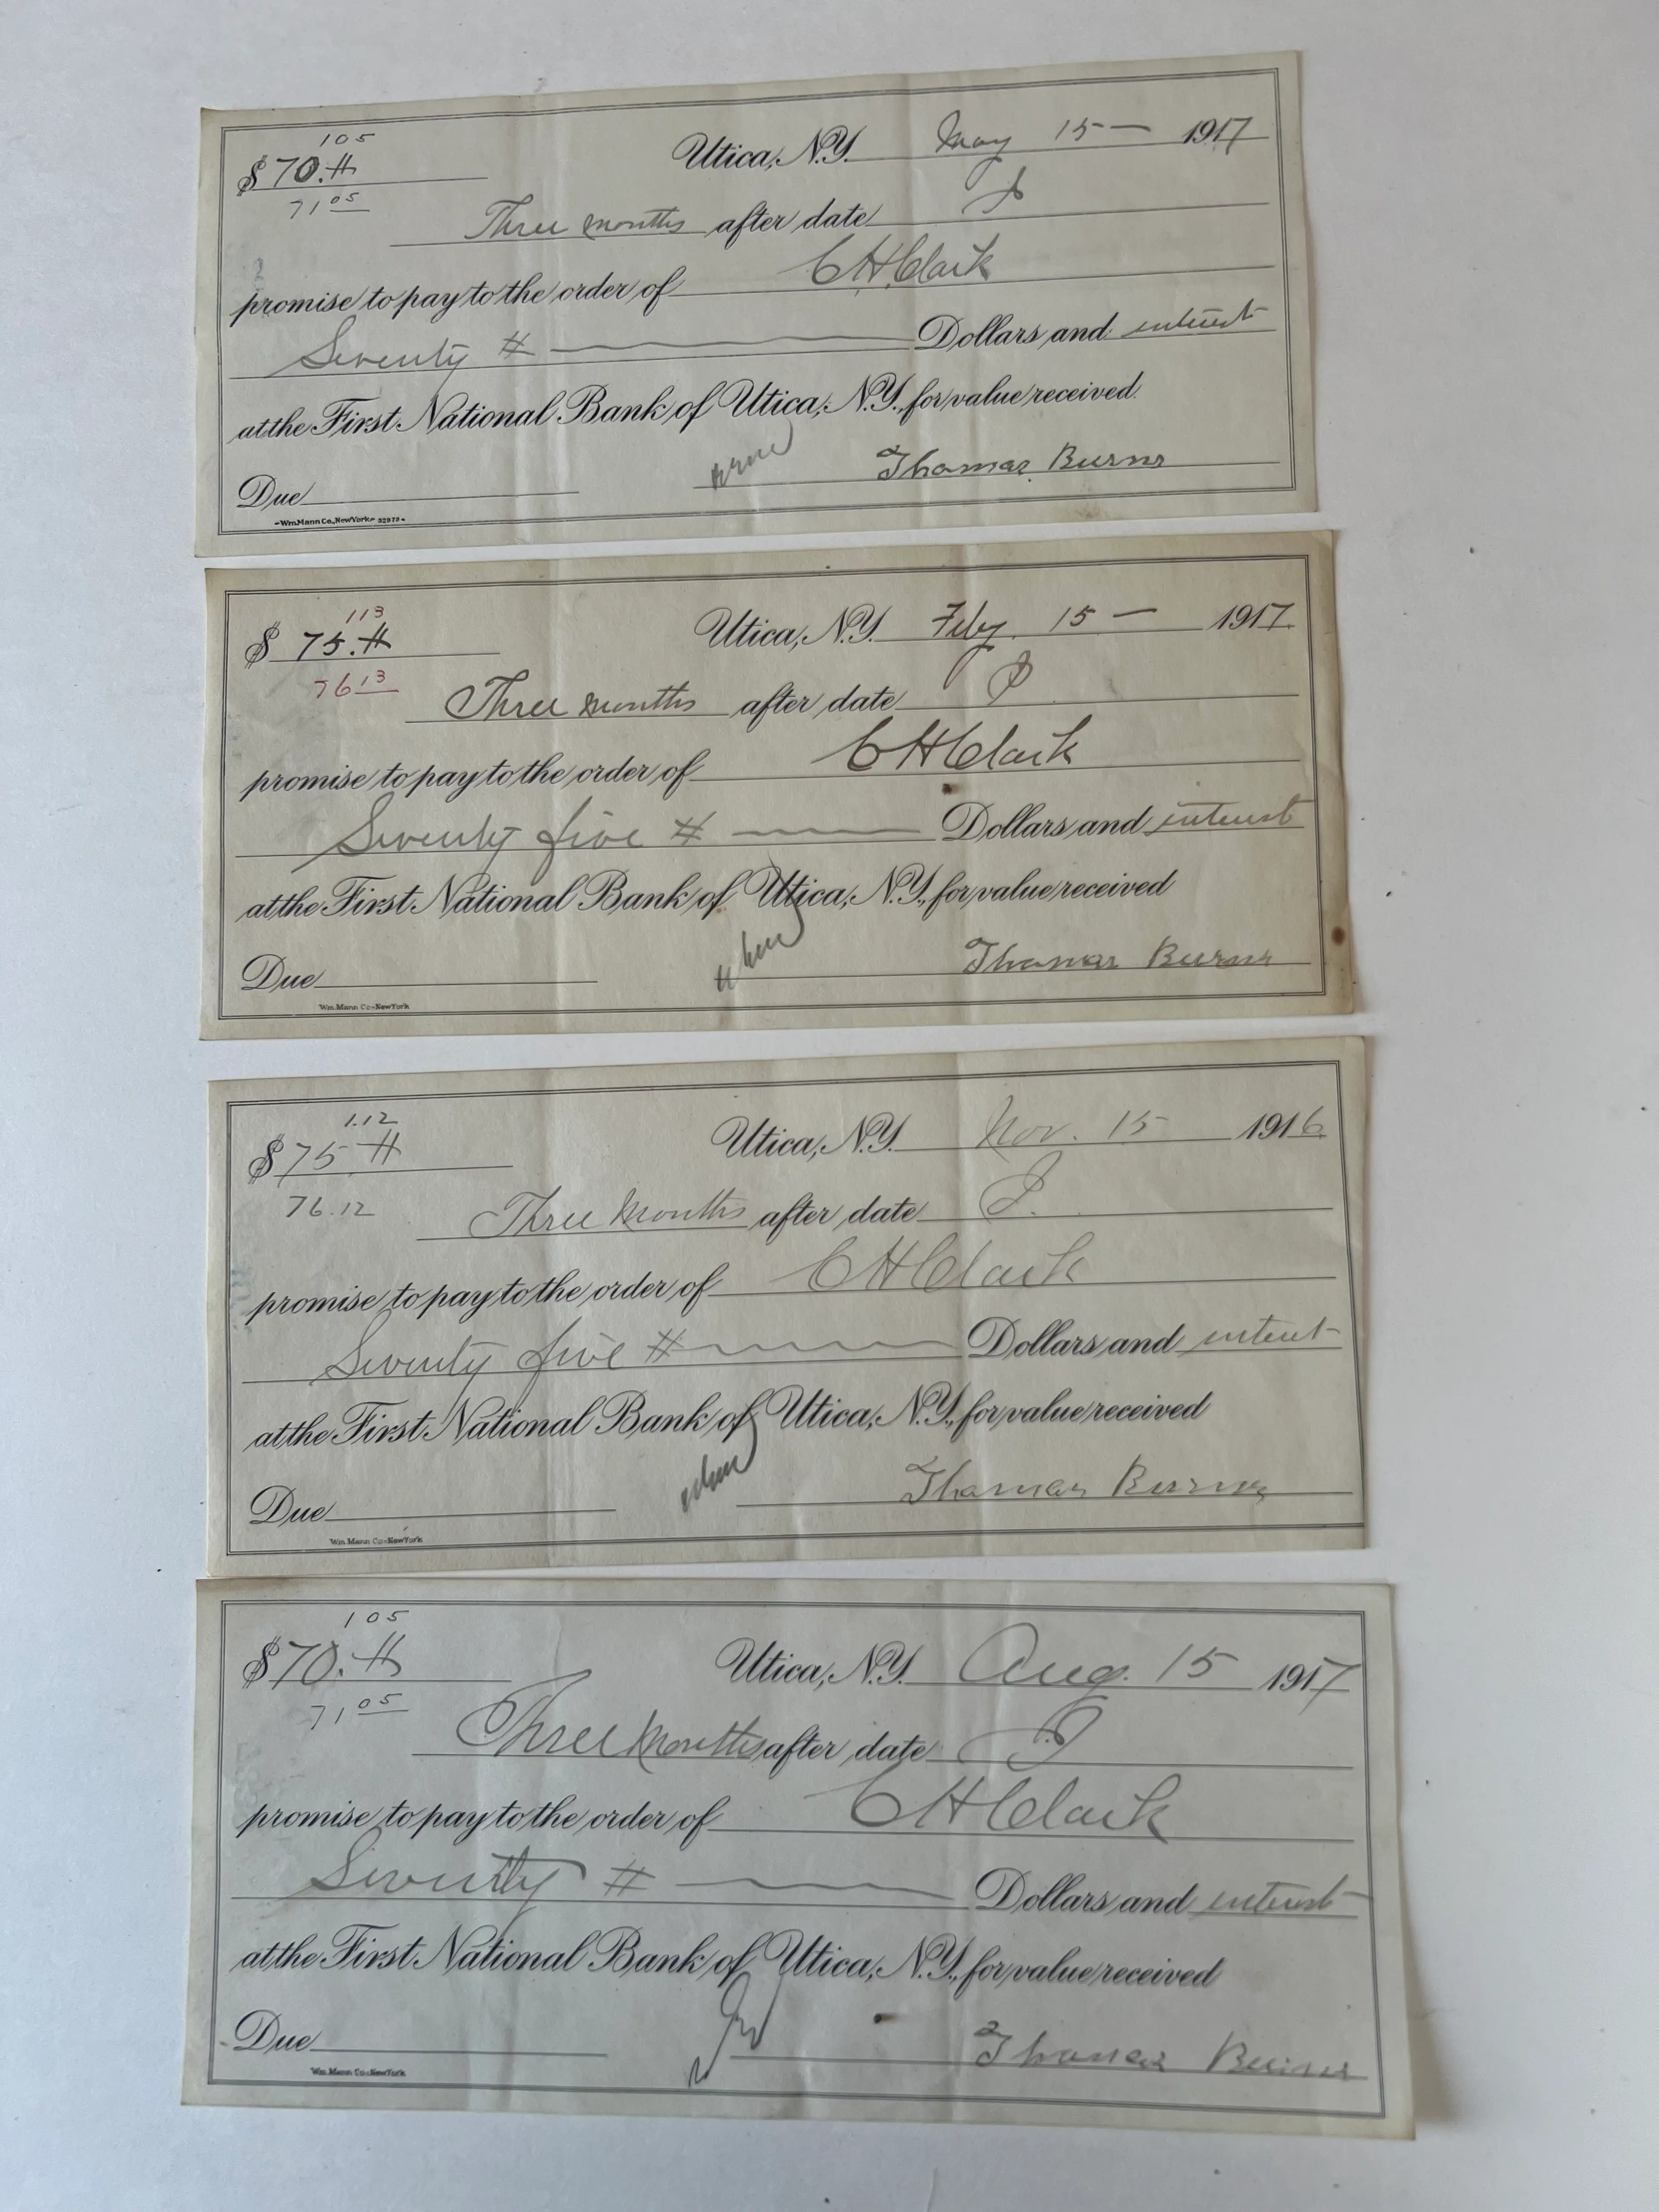 105
$ 70.#
71 05
Utica, N.Y. May 15 — 1917
Three months after date I
promise to pay to the order of C H Clark
Seventy # Dollars and interest
at the First National Bank of Utica, N.Y., for value received.
Thomas Burns
Due
Wm. Mann Co., New York 32973
113
$ 75.#
76 13
Utica, N.Y. Feby. 15 — 1917
Three months after date I
promise to pay to the order of C H Clark
Seventy five # Dollars and interest
at the First National Bank of Utica, N.Y., for value received
Thomas Burns
Due
Wm. Mann Co-New York
1.12
$ 75 #
76.12
Utica, N.Y. Nov. 15 1916
Three Months after date I.
promise to pay to the order of C H Clark
Seventy five # Dollars and interest
at the First National Bank of Utica, N.Y., for value received
Thomas Burns
Due
Wm. Mann Co-New York
105
$ 70.#
71 05
Utica, N.Y. Aug. 15 1917
Three Months after date I
promise to pay to the order of C H Clark
Seventy # Dollars and interest
at the First National Bank of Utica, N.Y., for value received
Thomas Burns
Due
Wm. Mann Co-New York